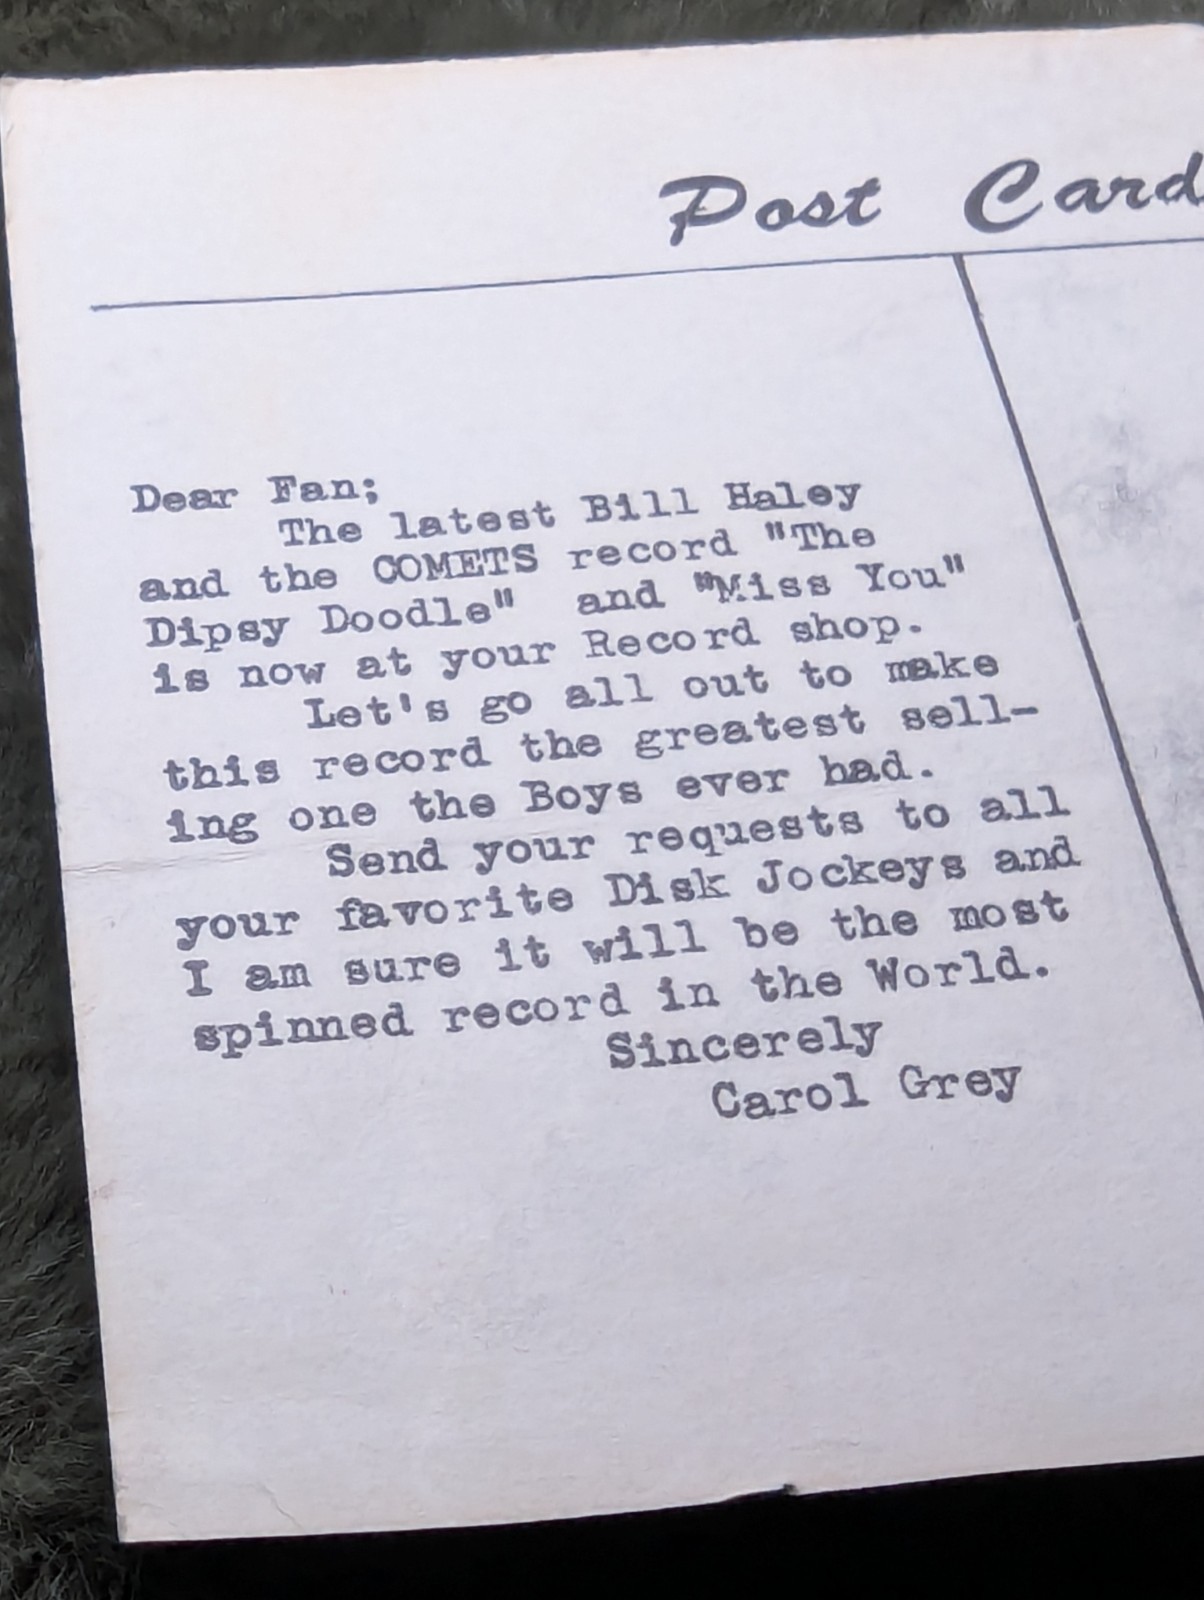 Post Card
Dear Fan;
The latest Bill Haley
and the COMETS record "The
Dipsy Doodle" and "Miss You"
is now at your Record shop.
Let's go all out to make
this record the greatest sell-
ing one the Boys ever had.
Send your requests to all
your favorite Disk Jockeys and
I am sure it will be the most
spinned record in the World.
Sincerely
Carol Grey